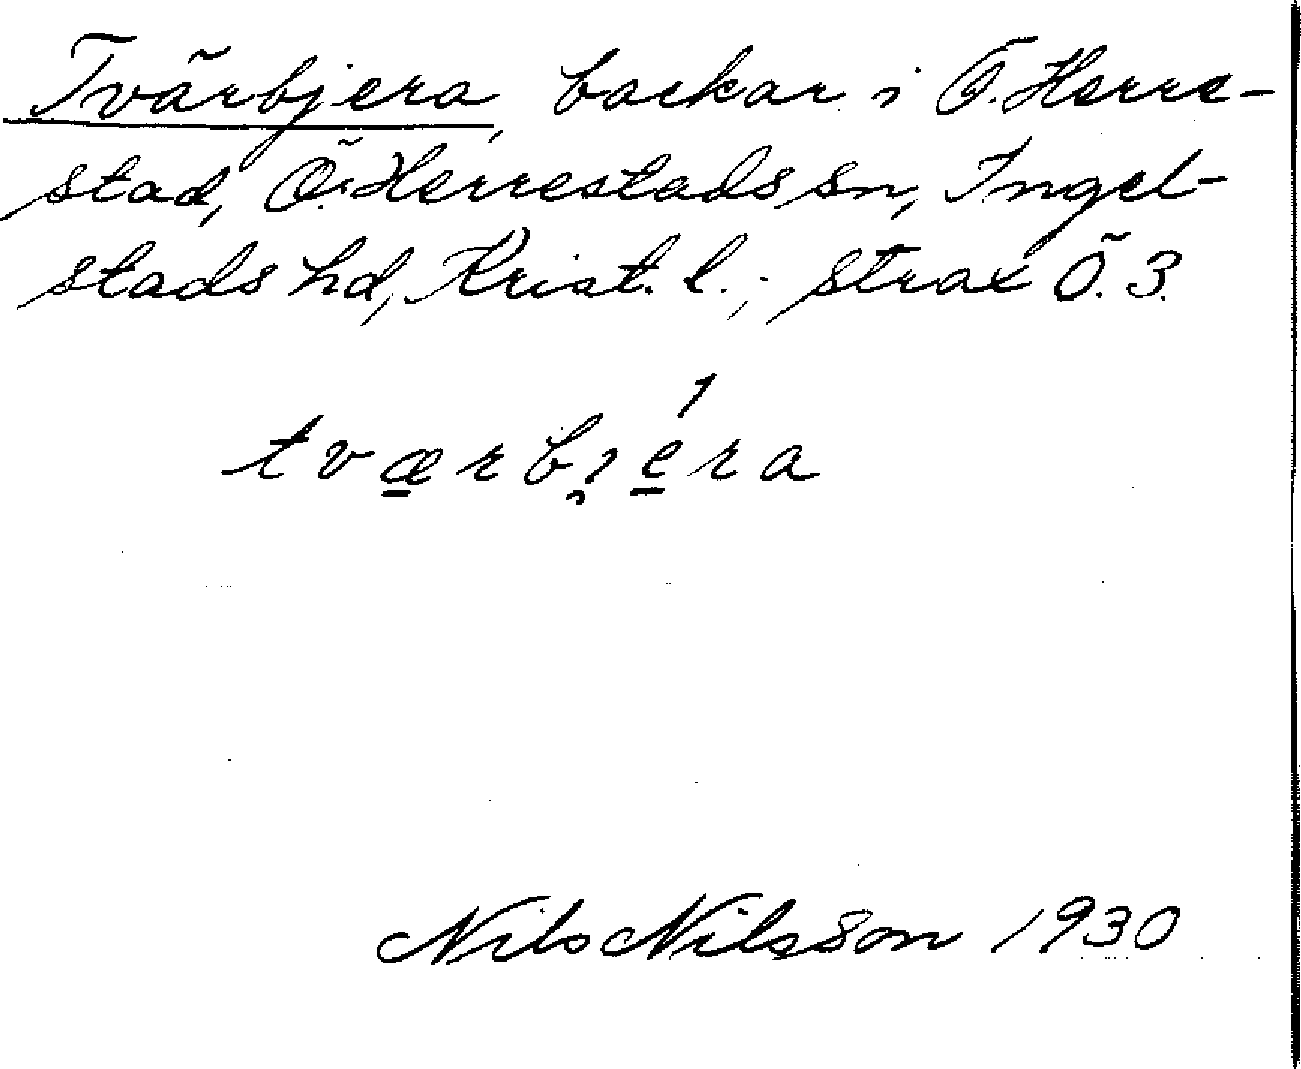 Tvärbjera, backar i Ö. Herre-
stad, Ö. Herrestads sn, Ingel-
stads hd, Krist. l.; strax Ö. 3.
tværbjéra
Nils Nilsson 1930